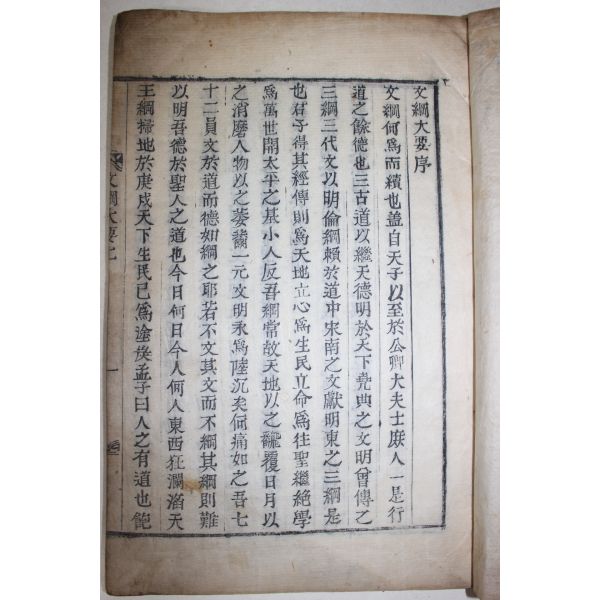 文綱大要序
文綱何爲而續也盖自天子以至於公卿大夫士庶人一是行
道之餘德也三古道以繼天德明於天下堯典之文明曾傳之
三綱三代文以明倫綱賴於道中宋南之文獻明東之三綱是
也君子得其經傳則爲天地立心爲生民立命爲往聖繼絶學
爲萬世開太平之基小人反吾綱常故天地以之飜覆日月以
之消磨人物以之萎 一元文明永爲陸沉矣何痛如之吾七
十二員文於道而德如綱之耶若不文其文而不綱其綱則難
以明吾德於聖人之道也今日何日今人何人東西狂瀾滔天
王綱掃地於庚戌天下生民已爲塗炭孟子曰人之有道也飽
文綱大要
一